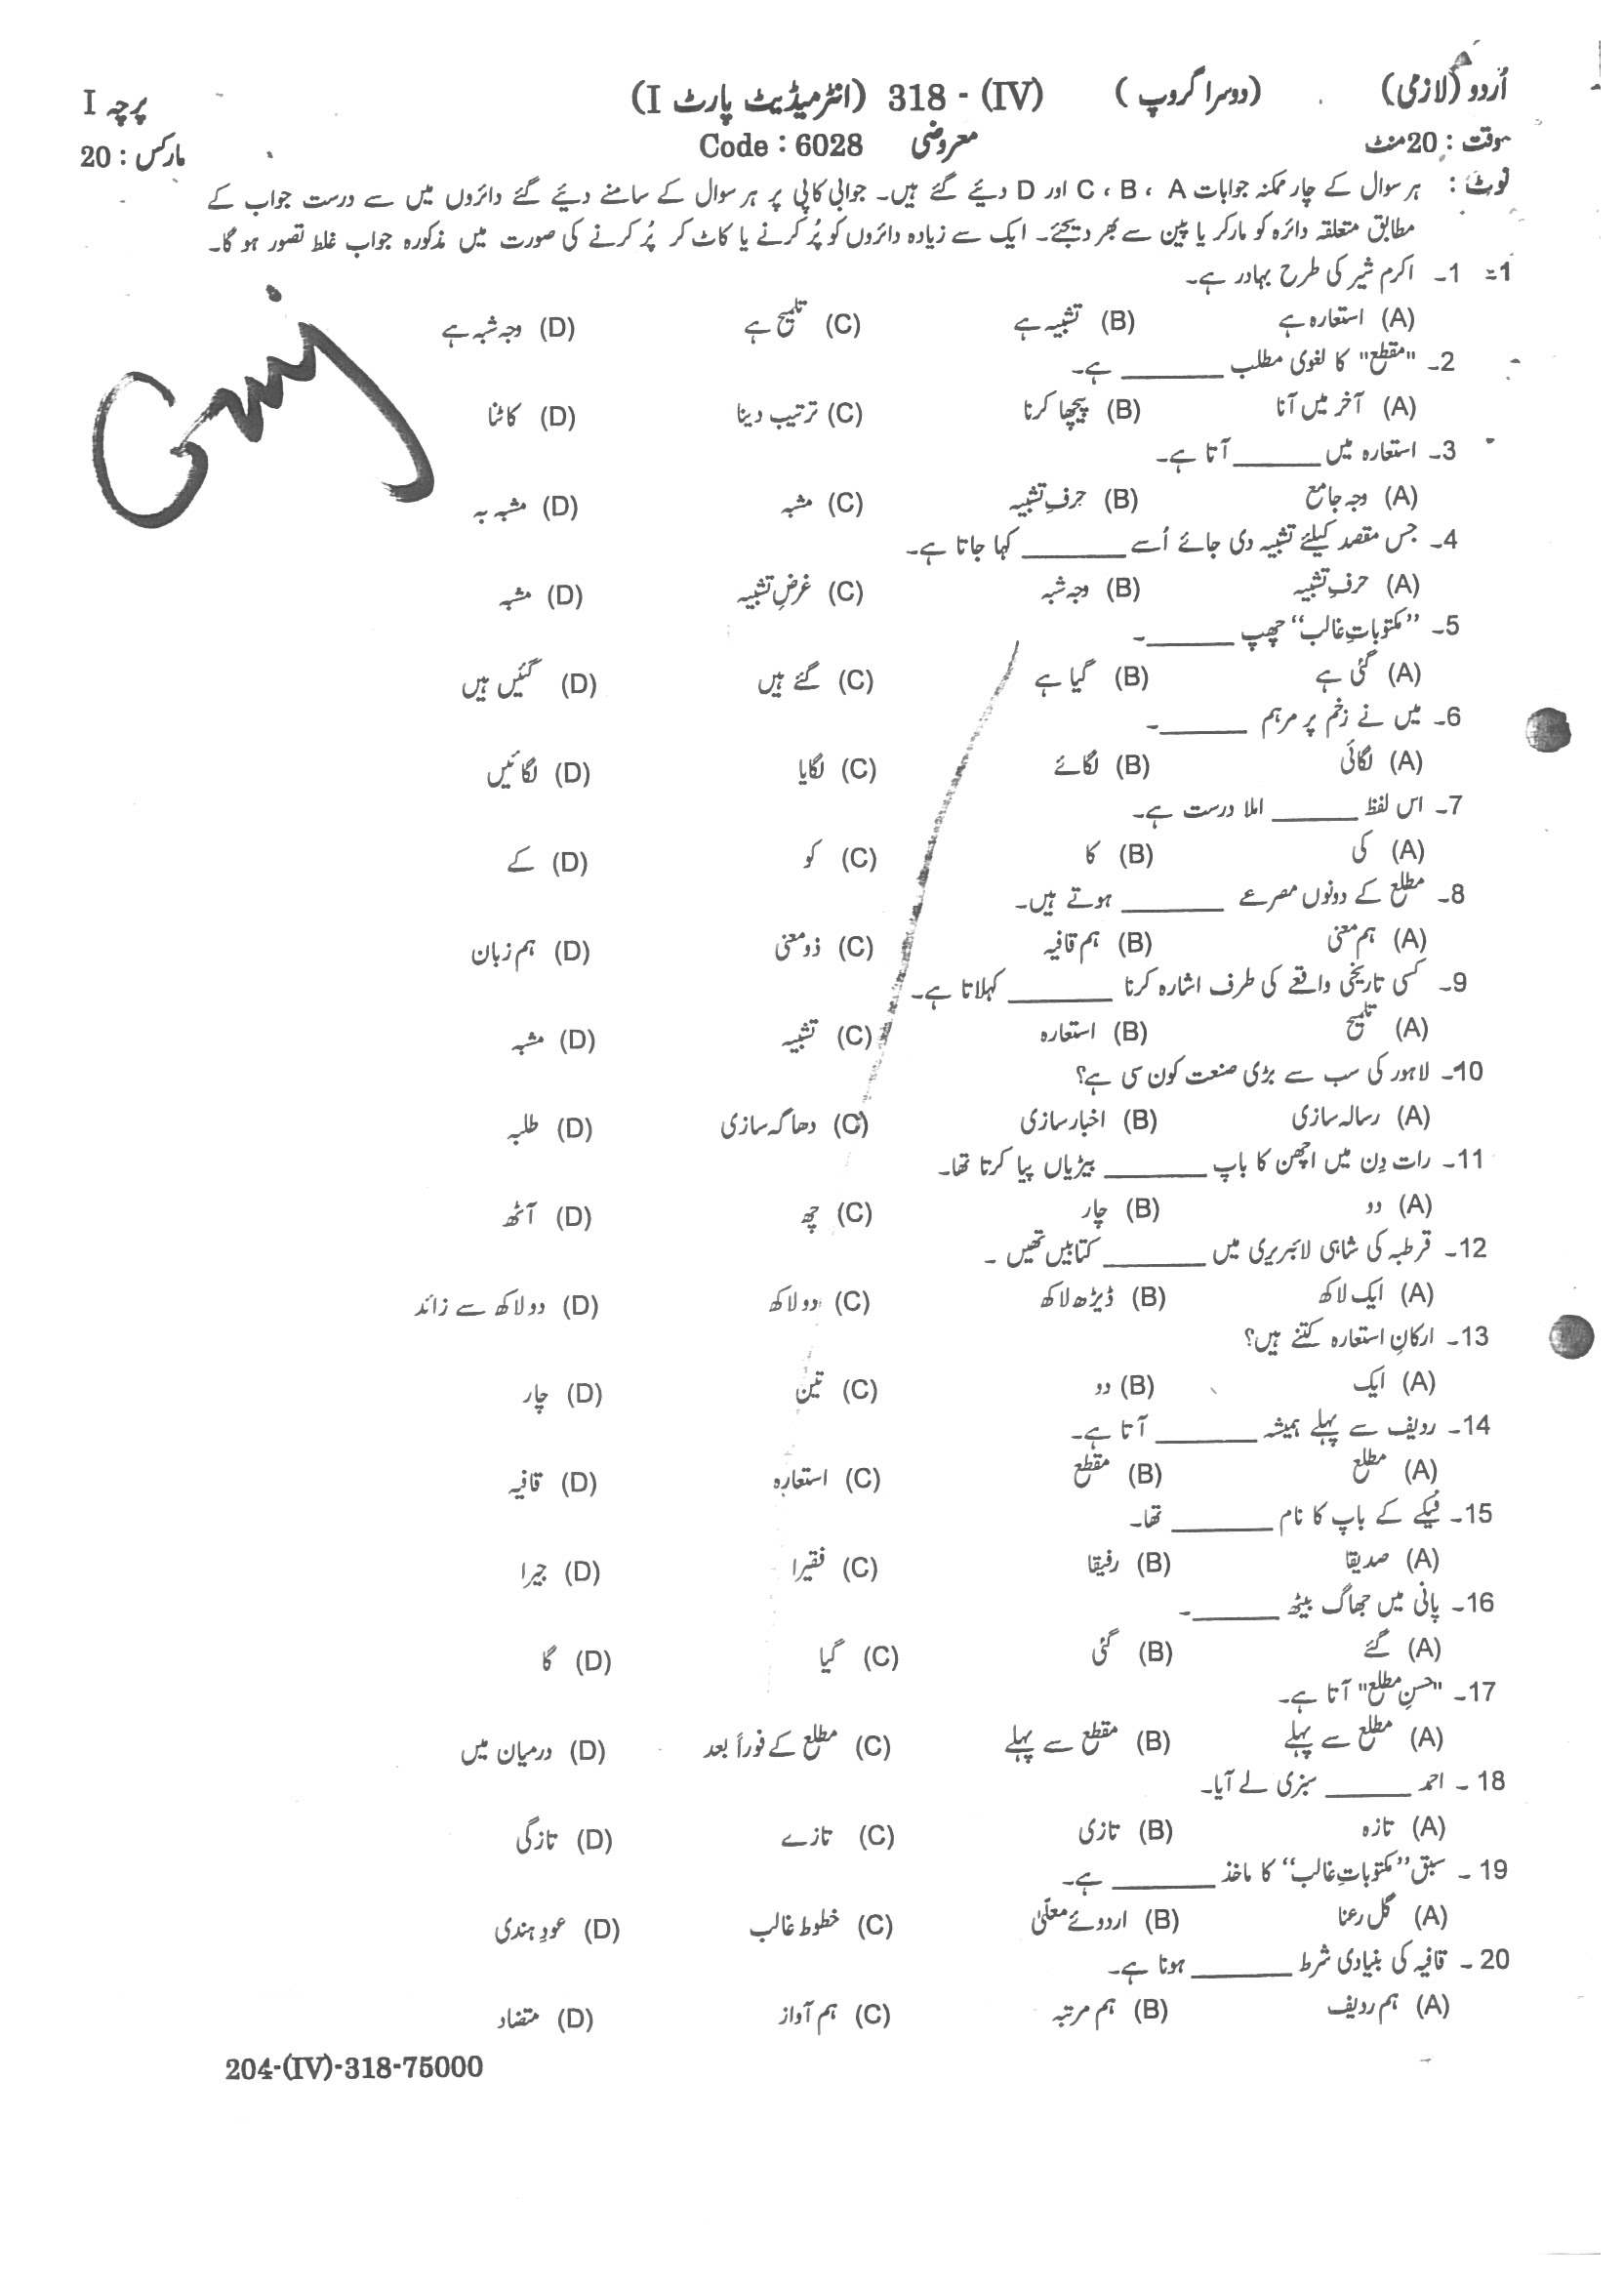 اُردو (لازمی) (دوسرا گروپ) 318 - (IV) (انٹرمیڈیٹ پارٹ I) پرچہ I
وقت : 20 منٹ معروضی Code : 6028 مارکس : 20
نوٹ : ہر سوال کے چار ممکنہ جوابات A ، B ، C اور D دیئے گئے ہیں۔ جوابی کاپی پر ہر سوال کے سامنے دیئے گئے دائروں میں سے درست جواب کے
مطابق متعلقہ دائرہ کو مارکر یا پین سے بھر دیجئے۔ ایک سے زیادہ دائروں کو پُر کرنے یا کاٹ کر پُر کرنے کی صورت میں مذکورہ جواب غلط تصور ہو گا۔
1= 1۔ اکرم شیر کی طرح بہادر ہے۔
(A) استعارہ ہے (B) تشبیہ ہے (C) تلمیح ہے (D) وجہ شبہ ہے
2۔ "مقطع" کا لغوی مطلب ______ ہے۔
(A) آخر میں آنا (B) پیچھا کرنا (C) ترتیب دینا (D) کاٹنا
3۔ استعارہ میں ______ آتا ہے۔
(A) وجہ جامع (B) حرفِ تشبیہ (C) مشبہ (D) مشبہ بہ
4۔ جس مقصد کیلئے تشبیہ دی جائے اُسے ______ کہا جاتا ہے۔
(A) حرفِ تشبیہ (B) وجہ شبہ (C) غرضِ تشبیہ (D) مشبہ
5۔ "مکتوباتِ غالب" چھپ ______۔
(A) گئی ہے (B) گیا ہے (C) گئے ہیں (D) گئیں ہیں
6۔ میں نے زخم پر مرہم ______۔
(A) لگائی (B) لگائے (C) لگایا (D) لگائیں
7۔ اس لفظ ______ املا درست ہے۔
(A) کی (B) کا (C) کو (D) کے
8۔ مطلع کے دونوں مصرعے ______ ہوتے ہیں۔
(A) ہم معنی (B) ہم قافیہ (C) ذو معنی (D) ہم زبان
9۔ کسی تاریخی واقعے کی طرف اشارہ کرنا ______ کہلاتا ہے۔
(A) تلمیح (B) استعارہ (C) تشبیہ (D) مشبہ
10۔ لاہور کی سب سے بڑی صنعت کون سی ہے؟
(A) رسالہ سازی (B) اخبار سازی (C) دھاگہ سازی (D) طلبہ
11۔ رات دِن میں اچھن کا باپ ______ بیڑیاں پیا کرتا تھا۔
(A) دو (B) چار (C) چھ (D) آٹھ
12۔ قرطبہ کی شاہی لائبریری میں ______ کتابیں تھیں۔
(A) ایک لاکھ (B) ڈیڑھ لاکھ (C) دو لاکھ (D) دو لاکھ سے زائد
13۔ ارکانِ استعارہ کتنے ہیں؟
(A) ایک (B) دو (C) تین (D) چار
14۔ ردیف سے پہلے ہمیشہ ______ آتا ہے۔
(A) مطلع (B) مقطع (C) استعارہ (D) قافیہ
15۔ فیکے کے باپ کا نام ______ تھا۔
(A) صدیقا (B) رفیقا (C) فقیرا (D) جیرا
16۔ پانی میں جھاگ بیٹھ ______۔
(A) گئے (B) گئی (C) گیا (D) گا
17۔ "حسنِ مطلع" آتا ہے۔
(A) مطلع سے پہلے (B) مقطع سے پہلے (C) مطلع کے فوراً بعد (D) درمیان میں
18۔ احمد ______ سبزی لے آیا۔
(A) تازہ (B) تازی (C) تازے (D) تازگی
19۔ سبق "مکتوباتِ غالب" کا ماخذ ______ ہے۔
(A) گل رعنا (B) اردوئے معلّیٰ (C) خطوط غالب (D) عودِ ہندی
20۔ قافیہ کی بنیادی شرط ______ ہونا ہے۔
(A) ہم ردیف (B) ہم مرتبہ (C) ہم آواز (D) متضاد
204-(IV)-318-75000